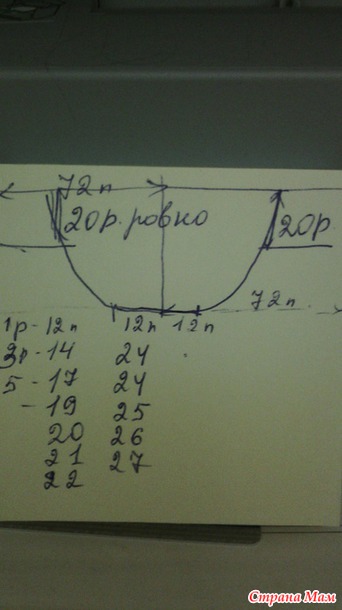 72п
20р. ровно 20р.
72п.
1р - 12п 12п 12п
3р - 14 24
5 - 17 24
- 19 25
20 26
21 27
22
Страна Мам